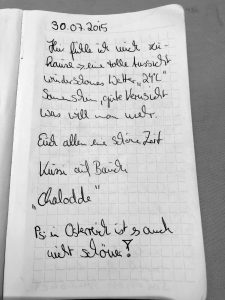 30.07.2015
Hier fühle ich mich zu-
hause → eine tolle Aussicht
wunderschönes Wetter, 24°C
Sonnenschein, gute
was will man mehr.
Euch allen eine schöne Zeit
Küsse auf Bauch
"Chalodde"
Ps: in Österreich ist es auch
nicht schöner!